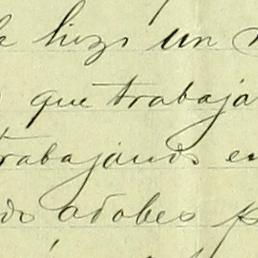 hizo un
que trabaja
trabajando en
do adobes p